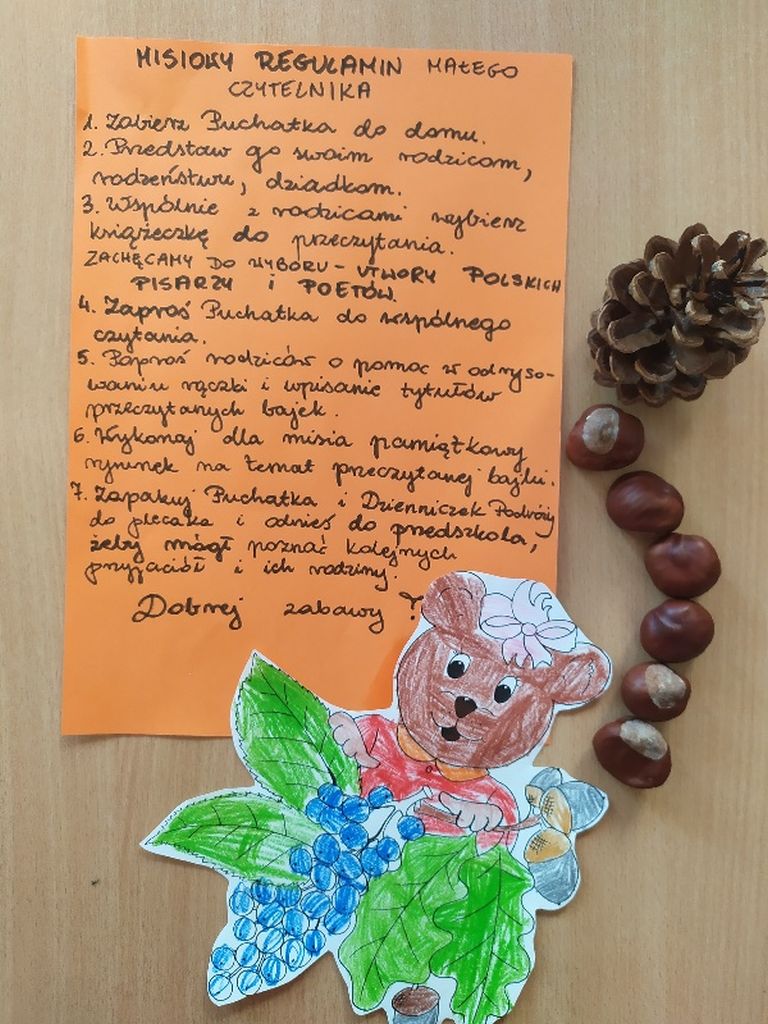 MISIOWY REGULAMIN MAŁEGO
CZYTELNIKA
1. Zabierz Puchatka do domu.
2. Przedstaw go swoim rodzicom,
rodzeństwu, dziadkom.
3. Wspólnie z rodzicami wybierz
książeczkę do przeczytania.
ZACHĘCAMY DO WYBORU - UTWORY POLSKICH
PISARZY I POETÓW.
4. Zaproś Puchatka do wspólnego
czytania.
5. Poproś rodziców o pomoc w odryso-
waniu rączki i wpisanie tytułów
przeczytanych bajek.
6. Wykonaj dla misia pamiątkowy
rysunek na temat przeczytanej bajki.
7. Zapakuj Puchatka i Dzienniczek Podróży
do plecaka i odnieś do przedszkola,
żeby mógł poznać kolejnych
przyjaciół i ich rodziny.
Dobrej zabawy!